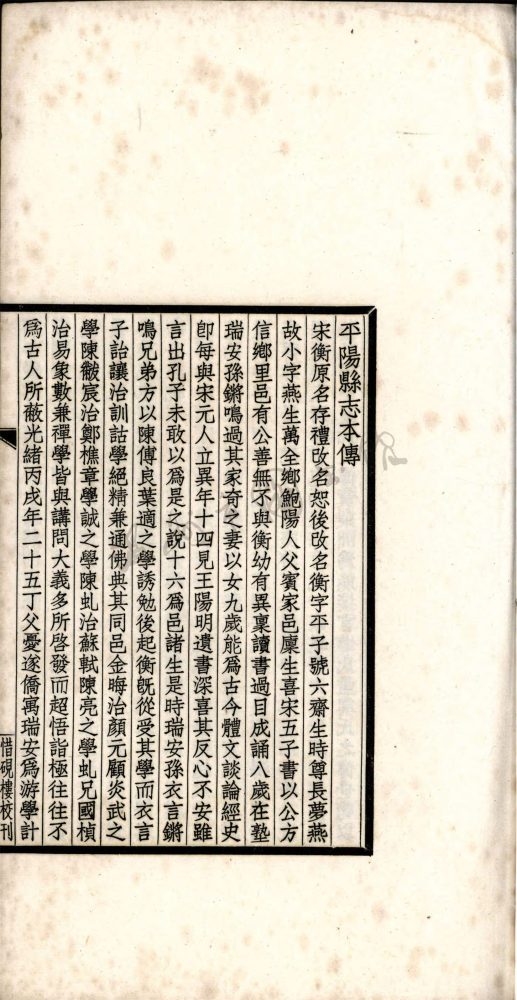 平陽縣志本傳
宋衡原名存禮改名恕後改名衡字平子號六齋生時尊長夢燕
故小字燕生萬全鄉鮑陽人父賓家邑廩生喜宋五子書以公方
信鄉里邑有公善無不與衡幼有異稟讀書過目成誦八歲在塾
瑞安孫鏘鳴過其家奇之妻以女九歲能爲古今體文談論經史
卽每與宋元人立異年十四見王陽明遺書深喜其反心不安雖
言出孔子未敢以爲是之說十六爲邑諸生是時瑞安孫衣言鏘
鳴兄弟方以陳傅良葉適之學誘勉後起衡旣從受其學而衣言
子詒讓治訓詁學絕精兼通佛典其同邑金晦治顏元顧炎武之
學陳黻宸治鄭樵章學誠之學陳虬治蘇軾陳亮之學虬兄國楨
治易象數兼禪學皆與講問大義多所啓發而超悟詣極往往不
爲古人所蔽光緒丙戌年二十五丁父憂遂僑寓瑞安爲游學計
惜硯樓校刊